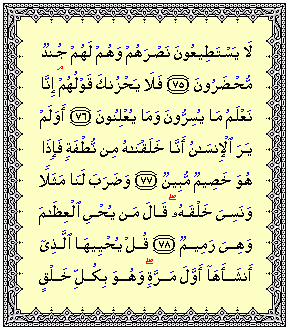 لَا يَسْتَطِيعُونَ نَصْرَهُمْ وَهُمْ لَهُمْ جُندٌ
مُّحْضَرُونَ ﴿٧٥﴾ فَلَا يَحْزُنكَ قَوْلُهُمْ ۘ إِنَّا
نَعْلَمُ مَا يُسِرُّونَ وَمَا يُعْلِنُونَ ﴿٧٦﴾ أَوَلَمْ
يَرَ ٱلْإِنسَٰنُ أَنَّا خَلَقْنَٰهُ مِن نُّطْفَةٍ فَإِذَا
هُوَ خَصِيمٌ مُّبِينٌ ﴿٧٧﴾ وَضَرَبَ لَنَا مَثَلًا
وَنَسِىَ خَلْقَهُۥ ۖ قَالَ مَن يُحْىِ ٱلْعِظَٰمَ
وَهِىَ رَمِيمٌ ﴿٧٨﴾ قُلْ يُحْيِيهَا ٱلَّذِىٓ
أَنشَأَهَآ أَوَّلَ مَرَّةٍ ۖ وَهُوَ بِكُلِّ خَلْقٍ